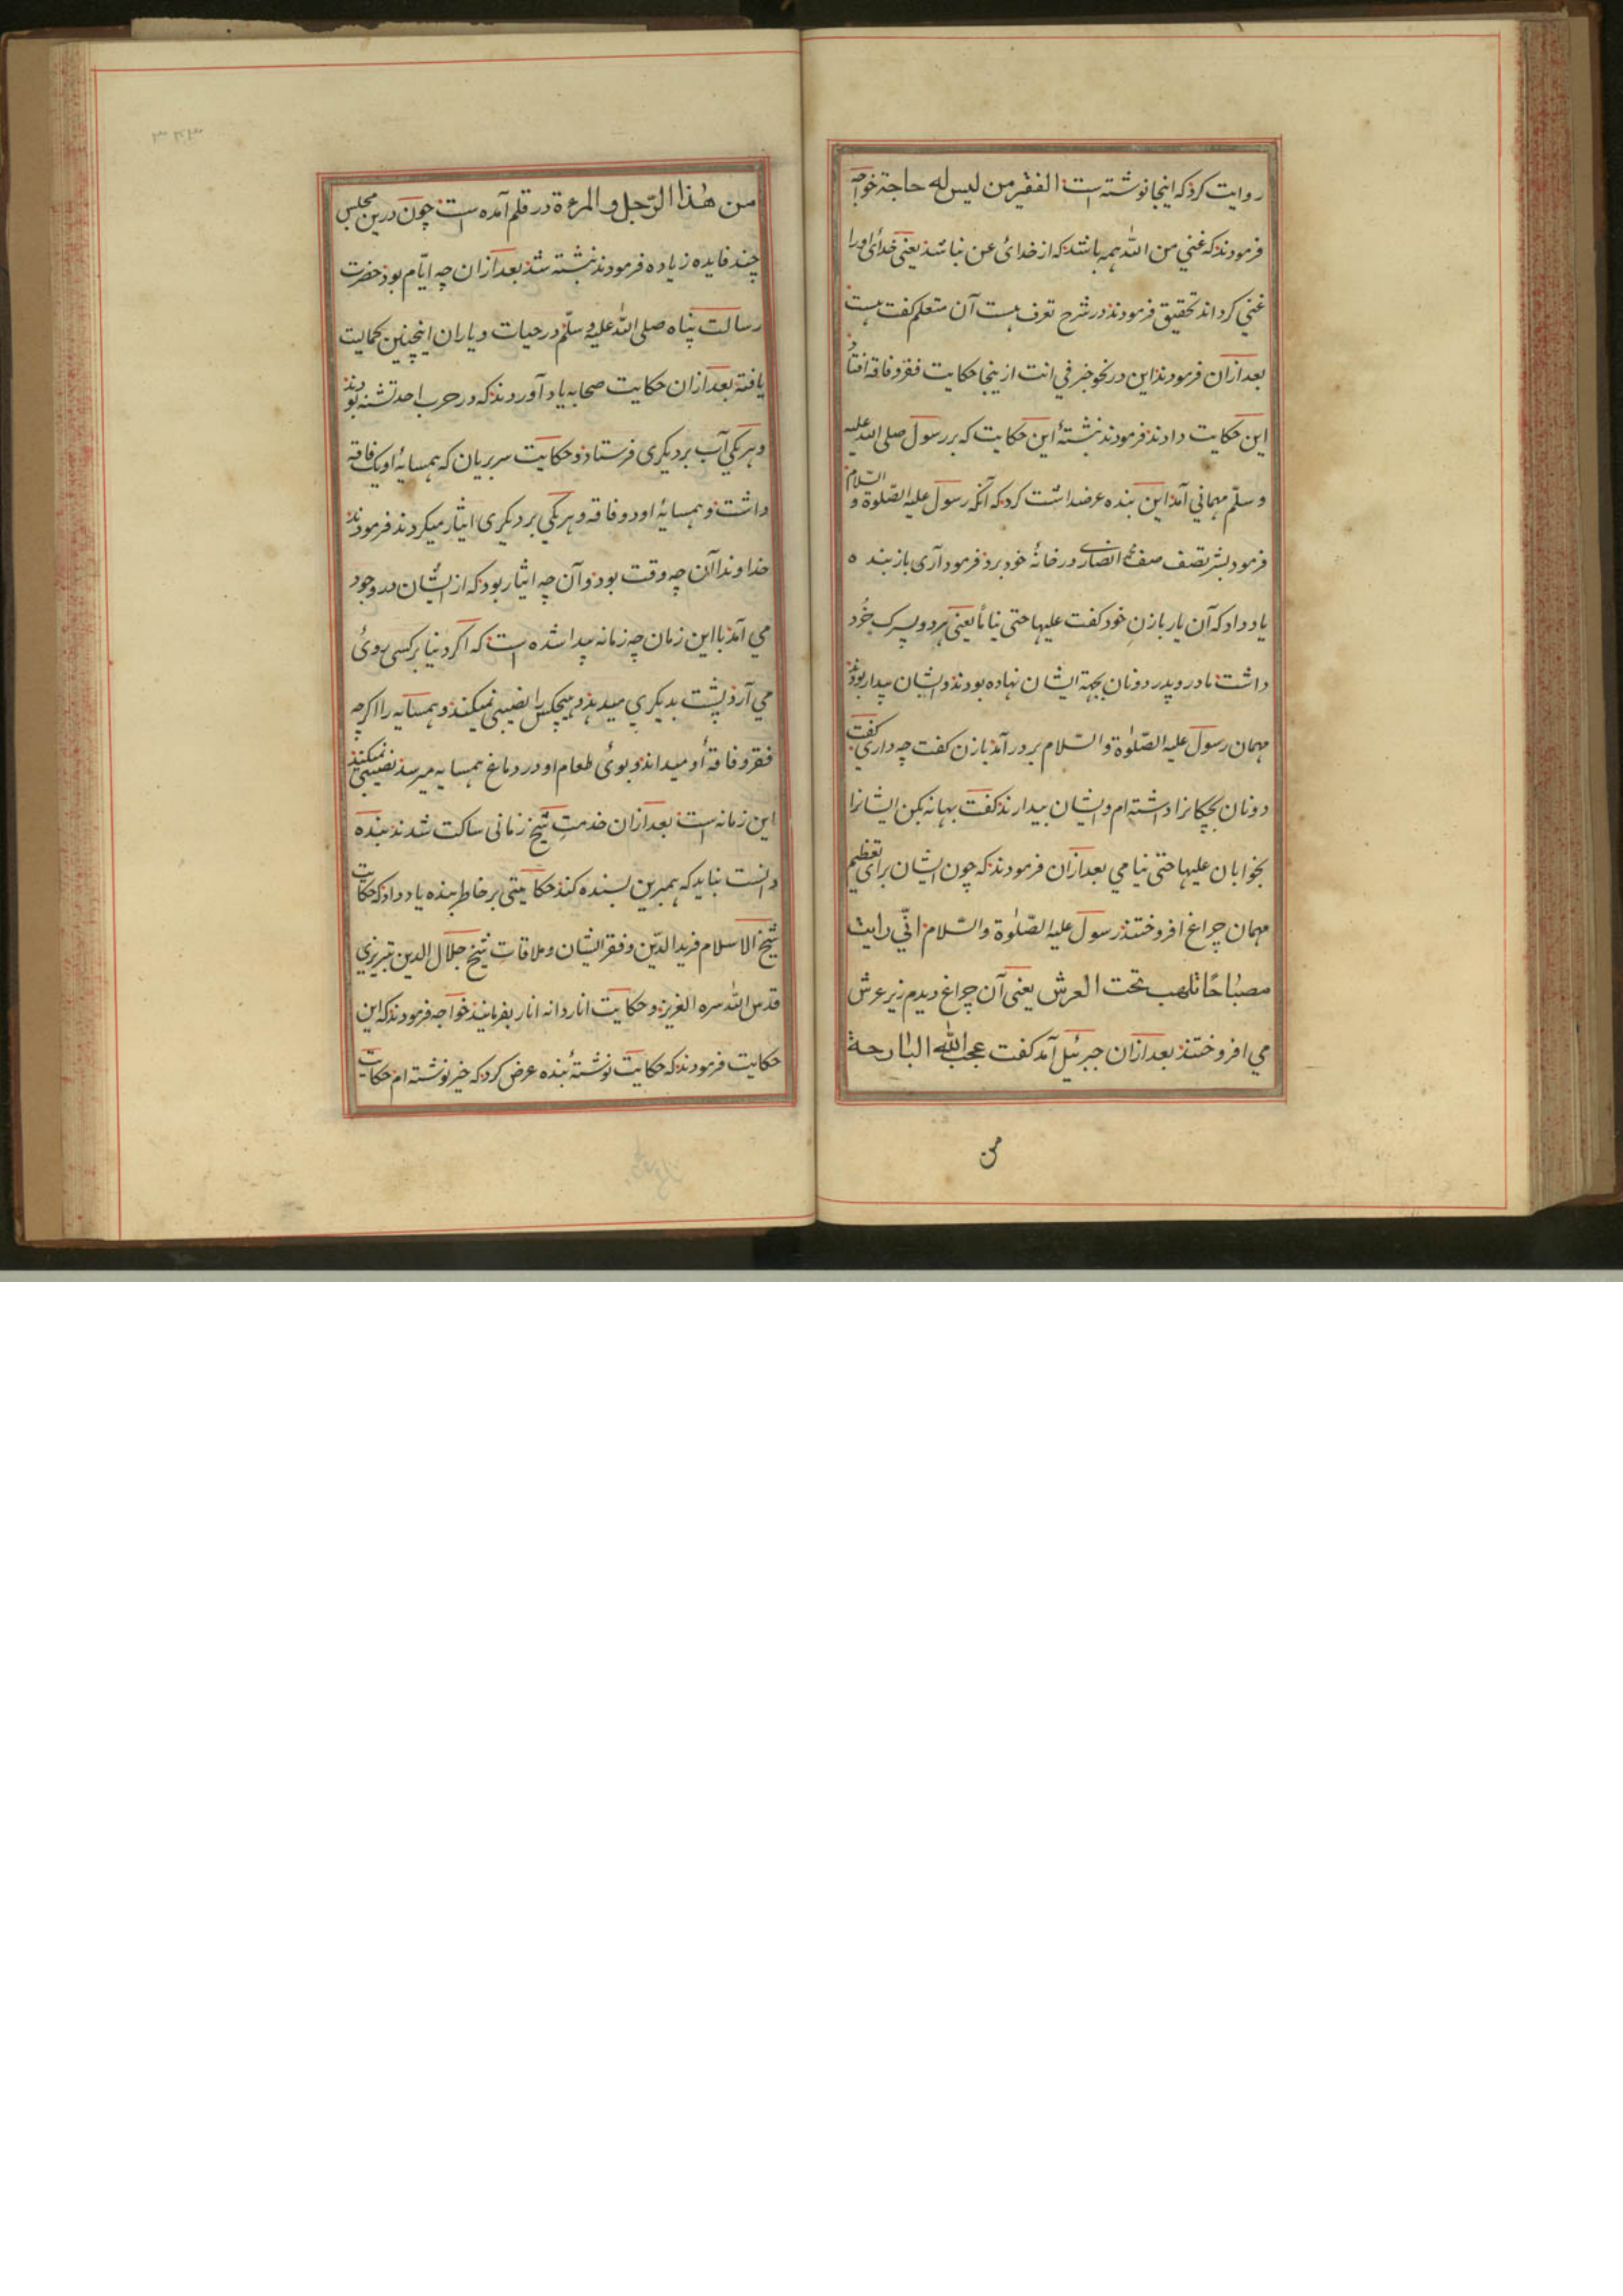 روایت کرد که اینجا نوشته است الفقیر من لیس له حاجة خواجه
فرمودند که غنی من الله همه باشد که از خدائ عن نباشد یعنی خدائ اورا
غنی کرداند تحقیق فرمودند در شرح تعرف هست آن متعلم کفت هست
بعد ازان فرمودند این در نحو خبر فی انت ازینجا حکایت فقر و فاقه افتاد
این حکایت دادند فرمودند نبشتهٔ این حکایت که بر رسول صلی الله علیه
وسلّم مهمانی آمد این بنده عرضداشت کرد که آنکه رسول علیه الصّلوة و السّلام
فرمود بشر انصاری در خانهٔ خود برد فرمود آری باز بنده
یاد داد که آن یار با زن خود کفت علیها حتی نیاما یعنی هر دو پسرک خُرد
داشت مادر و پدر دو نان بجهة ایشان نهاده بودند و ایشان بیدار بودند
مهمان رسول علیه الصّلوٰة و السّلام بر در آمد با زن کفت چه داری کفت
دو نان بچکانرا داشته ام و ایشان بیدارند کفت بهانه بکن ایشانرا
بخوابان علیها حتی نیامی بعد ازان فرمودند که چون ایشان برای تعظیم
مهمان چراغ افروختند رسول علیه الصّلوٰة والسّلام انّی رایت
مصباحًا تلهب تحت العرش یعنی آن چراغ دیدم زیر عرش
می افروختند بعد ازان جبرئیل آمد کفت عجب الله البارحة
من
۳۴۳
من هٰذا الرّجل و المرءة در قلم آمده است چون درین مجلس
چند فایده زیاده فرمودند نبشته شد بعد ازان چه ایّام بود حضرت
رسالت پناه صلی الله علیه و سلّم در حیات و یاران اینچنین کمالیت
یافته بعد ازان حکایت صحابه یاد آوردند که در حرب احد تشنه بودند
و هر یکی آب بر دیکری فرستاد و حکایت سر بریان که همسایهٔ او یک فاقه
داشت و همسایهٔ او دو فاقه و هر یکی بر دیکری ایثار میکردند فرمودند
خداوندا آن چه وقت بود و آن چه ایثار بود که از ایشان در وجود
می آمد با این زمان چه زمانه پیدا شده است که اکر دنیا بر کسی روئ
می آرد پشت بدیکری میدهد و هیچکس را نصیبی نمیکند و همسایه را اکر چه
فقر و فاقهٔ او میداند و بوئ طعام او در دماغ همسایه میرسد نصیبی نمیکنند
این زمانه است بعد ازان خدمتِ شیخ زمانی ساکت شدند بنده
دانست بباید که همبرین بسنده کند حکایتی بر خاطر بنده یاد داد که حکایت
شیخ الاسلام فرید الدّین و فقر ایشان و ملاقاتِ شیخ جلال الدین تبریزی
قدس الله سره العزیز و حکایت انار دانه انار بفرمایند خواجه فرمودند که این
حکایت فرمودند که حکایت نوشتهٔ بنده عرض کرد که خیر نوشته ام حکایت